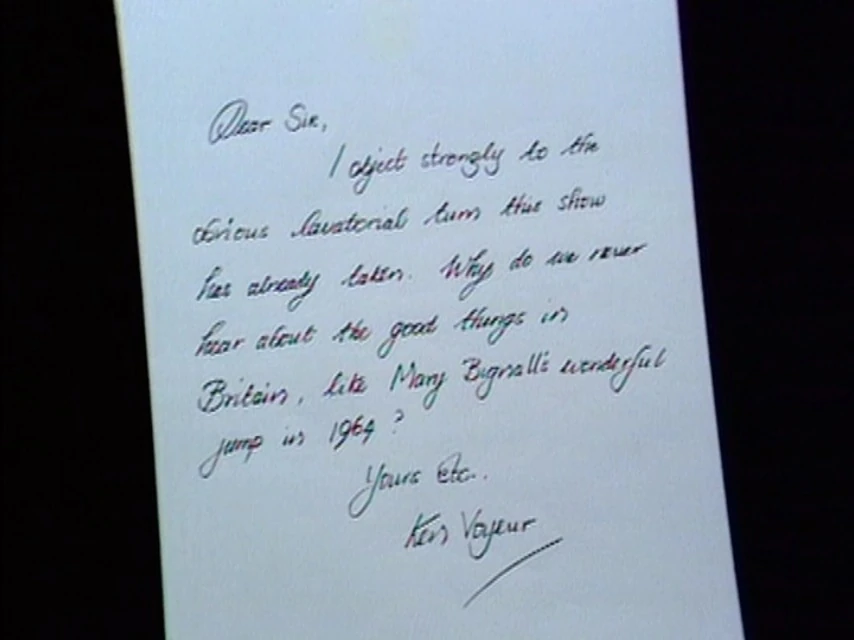 Dear Sir,
I object strongly to the
obvious lavatorial turn this show
has already taken. Why do we never
hear about the good things in
Britain, like Mary Bignall's wonderful
jump in 1964?
Yours Etc.
Ken Voyeur